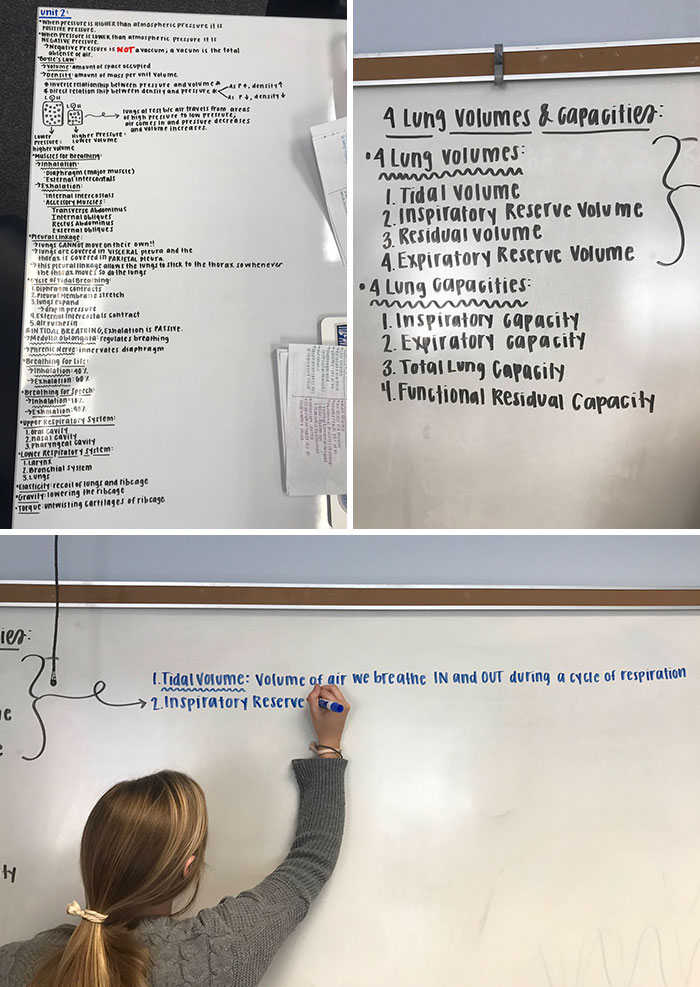 Unit 2:
*When pressure is HIGHER than atmospheric pressure it is
POSITIVE PRESSURE.
*When pressure is LOWER than atmospheric pressure it is
NEGATIVE PRESSURE.
→Negative Pressure is NOT a vaccum, a vacum is the total
absense of air.
*Boyle's Law:
→Volume: amount of space occupied
→Density: amount of mass per unit volume
* Inverse relationship between pressure and volume *
* Direct relationship between density and pressure *
As P↑, density↑
As P↓, density↓
L H
L H
lungs at rest b/c air travels from areas
of high pressure to low pressure;
air comes in and pressure decreases
and volume increases.
Lower
Pressure:
higher volume
Higher Pressure:
Lower volume
*Muscles for Breathing:
→Inhalation:
Diaphragm (major muscle)
External Intercostals
→Exhalation:
Internal Intercostals
Accessory Muscles:
Transverse Abdominus
Internal Obliques
Rectus Abdominus
External Obliques
*Pleural Linkage:
→lungs CANNOT move on their own!!
→lungs are covered in VISCERAL pleura and the
thorax is covered in PARIETAL pleura.
→This pleural linkage allows the lungs to stick to the thorax so whenever
the thorax moves so do the lungs
*Cycle of Tidal Breathing:
1. Diaphragm contracts
2. Pleural Membrane stretch
3. lungs expand
→drop in pressure
4. External Intercostals contract
5. air rushes in
*IN TIDAL BREATHING, Exhalation is PASSIVE.
→Medulla Oblongata: regulates breathing
→Phrenic Nerve: innervates diaphragm
*Breathing for Life:
→Inhalation: 40%
→Exhalation: 60%
*Breathing for Speech:
→Inhalation: 10%
→Exhalation: 90%
*Upper Respiratory System:
1. Oral cavity
2. Nasal cavity
3. Pharyngeal cavity
*Lower Respiratory System:
1. Larynx
2. Bronchial System
3. Lungs
*Elasticity: recoil of lungs and ribcage
*Gravity: lowering the ribcage
*Torque: untwisting cartilages of ribcage
4 Lung Volumes & Capacities:
•4 Lung Volumes:
1. Tidal Volume
2. Inspiratory Reserve Volume
3. Residual Volume
4. Expiratory Reserve Volume
•4 Lung Capacities:
1. Inspiratory Capacity
2. Expiratory Capacity
3. Total Lung Capacity
4. Functional Residual Capacity
ies:
1. Tidal Volume: Volume of air we breathe IN and OUT during a cycle of respiration
2. Inspiratory Reserve
e
e
ty